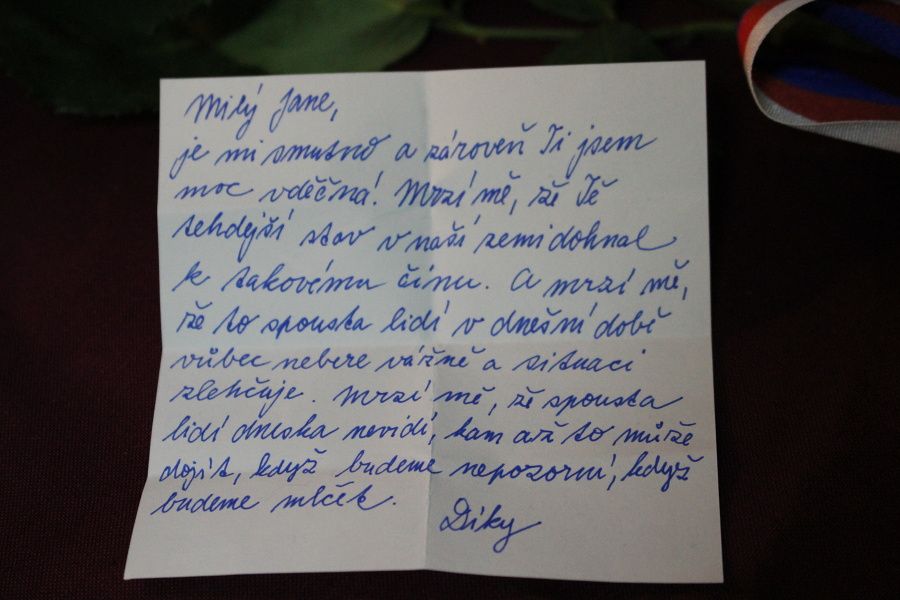 Milý Jane,
je mi smutno a zároveň Ti jsem
moc vděčná! Mrzí mě, že Tě
tehdejší stav v naší zemi dohnal
k takovému činu. A mrzí mě,
že to spousta lidí v dnešní době
vůbec nebere vážně a situaci
zlehčuje. Mrzí mě, že spousta
lidí dneska nevidí, kam až to může
dojít, když budeme nepozorní, když
budeme mlčet.
Díky